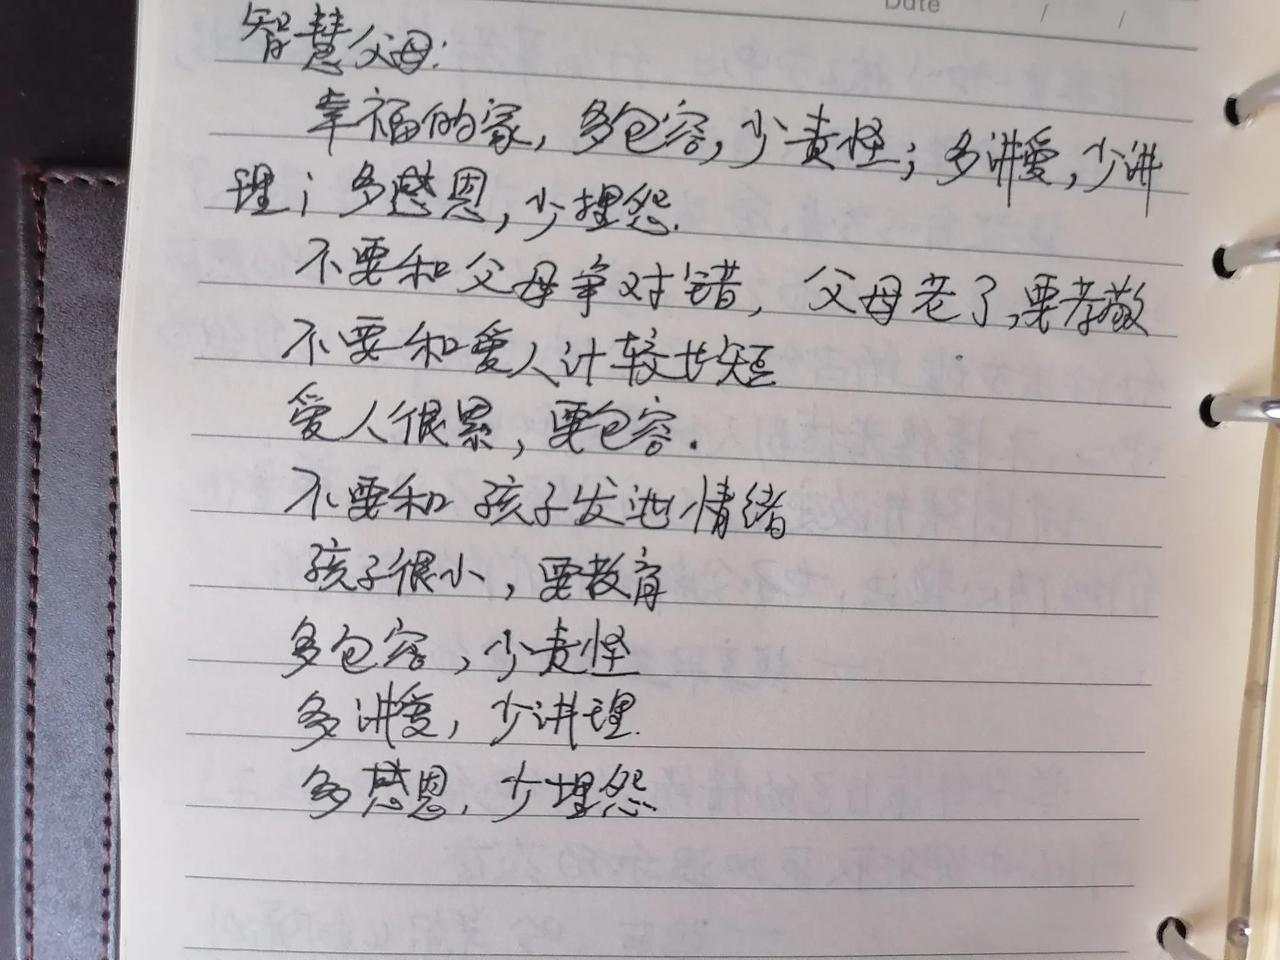 Date / /
智慧父母:
幸福的家,多包容,少责怪;多讲爱,少讲
理;多感恩,少埋怨.
不要和父母争对错,父母老了,要孝敬
不要和爱人计较长短
爱人很累,要包容.
不要和孩子发泄情绪
孩子很小,要教育
多包容,少责怪
多讲爱,少讲理.
多感恩,少埋怨